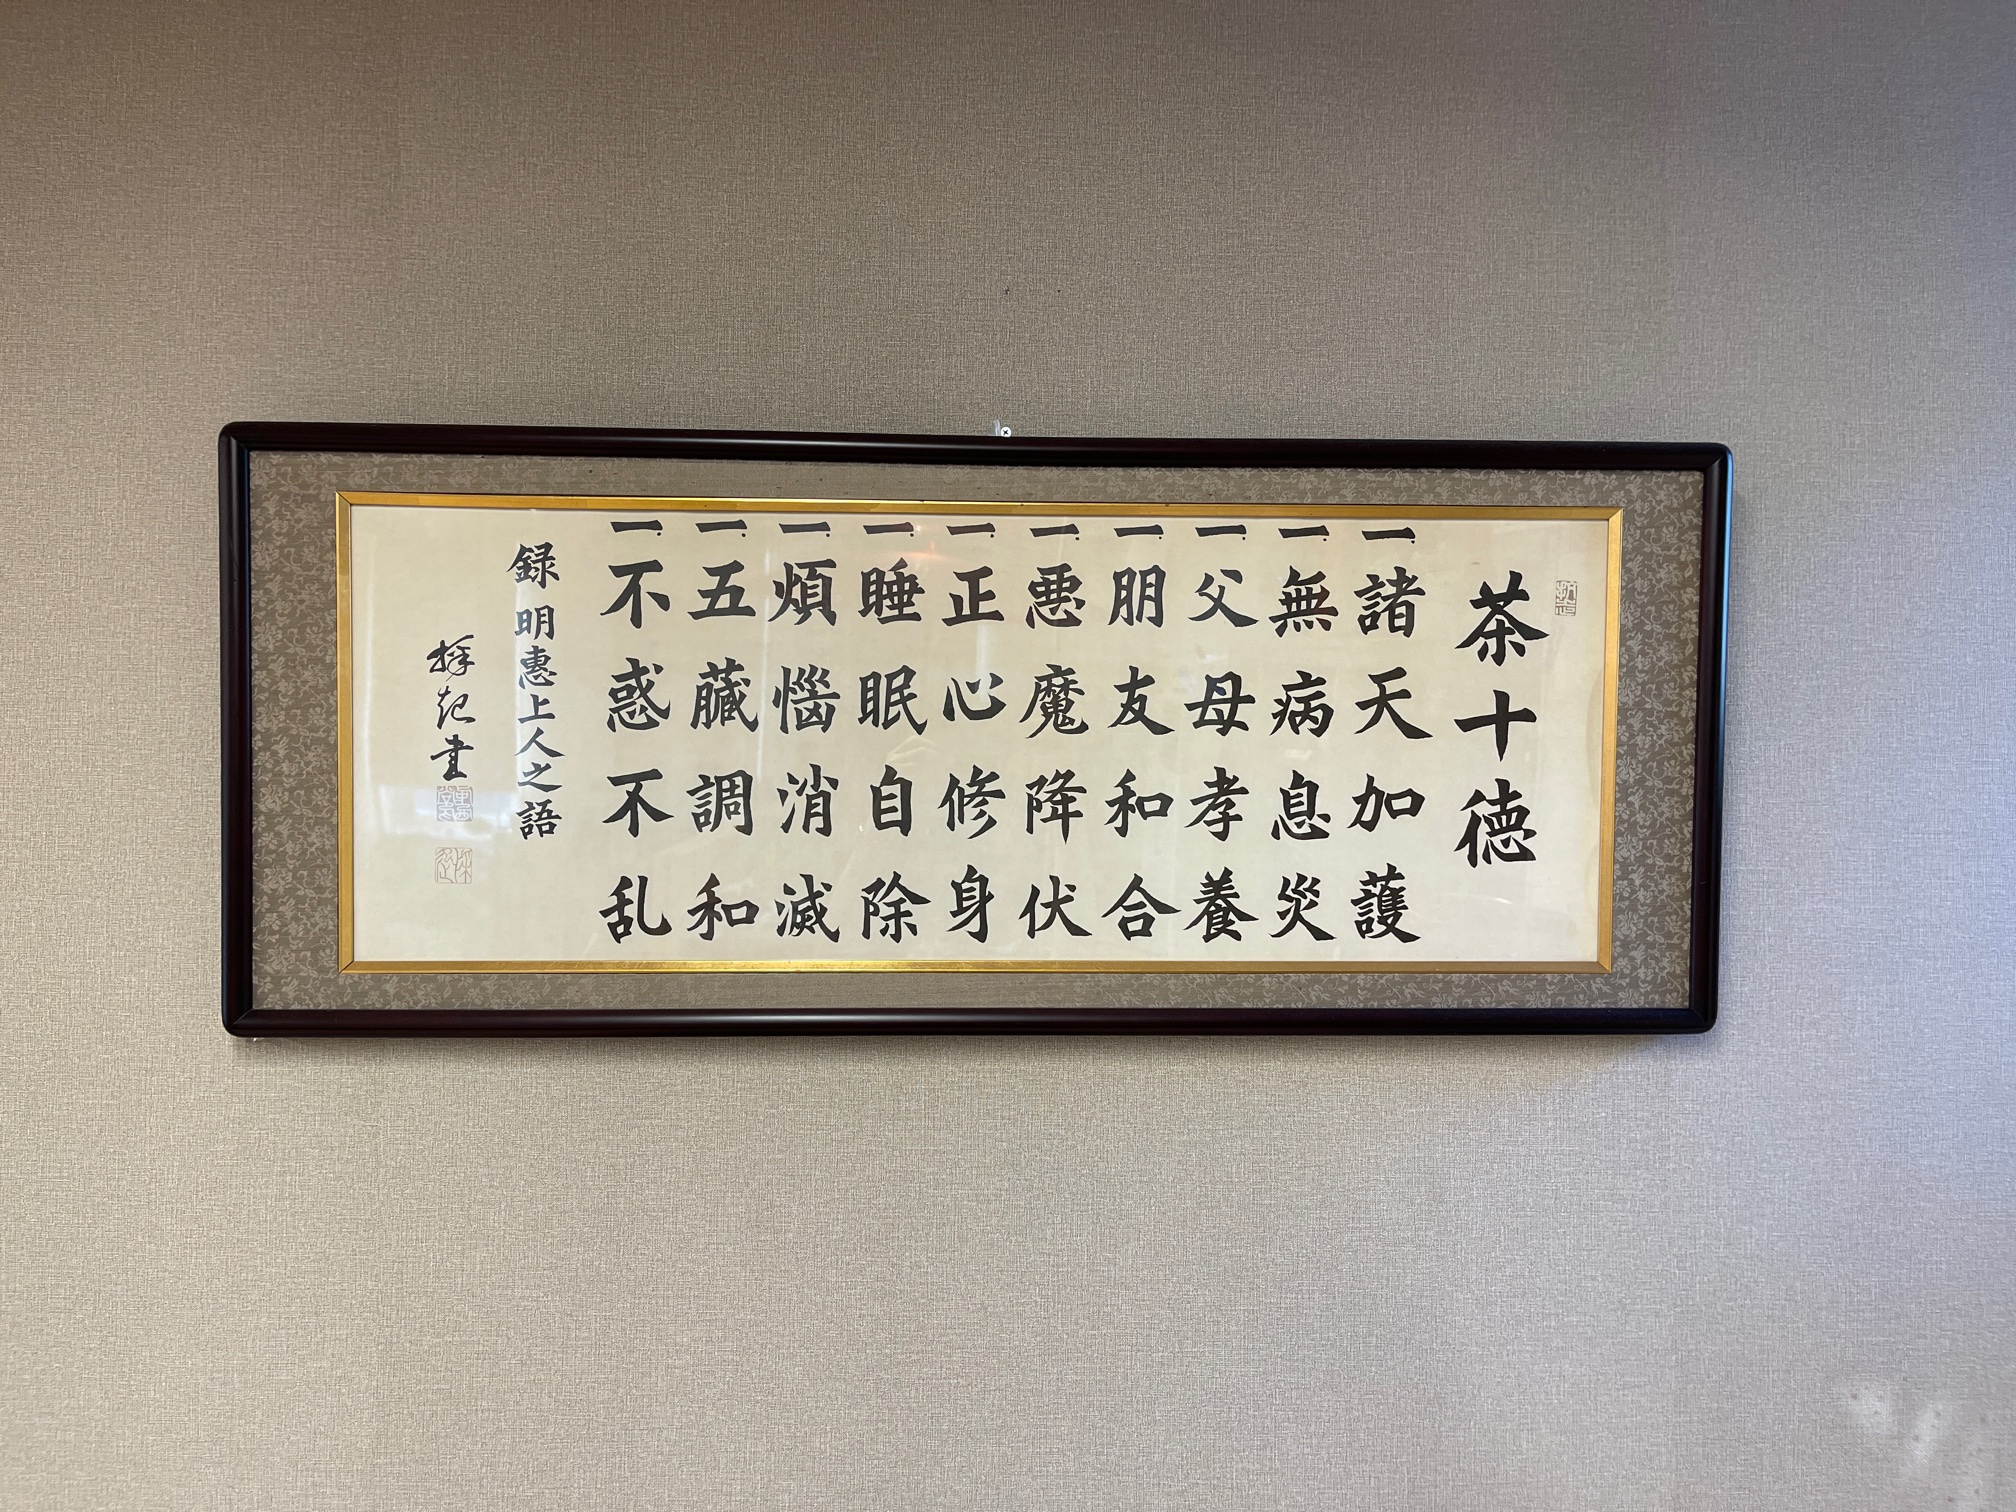 茶十徳
一、諸天加護
一、無病息災
一、父母孝養
一、朋友和合
一、悪魔降伏
一、正心修身
一、睡眠自除
一、煩悩消滅
一、五臓調和
一、不惑不乱
録明惠上人之語
書